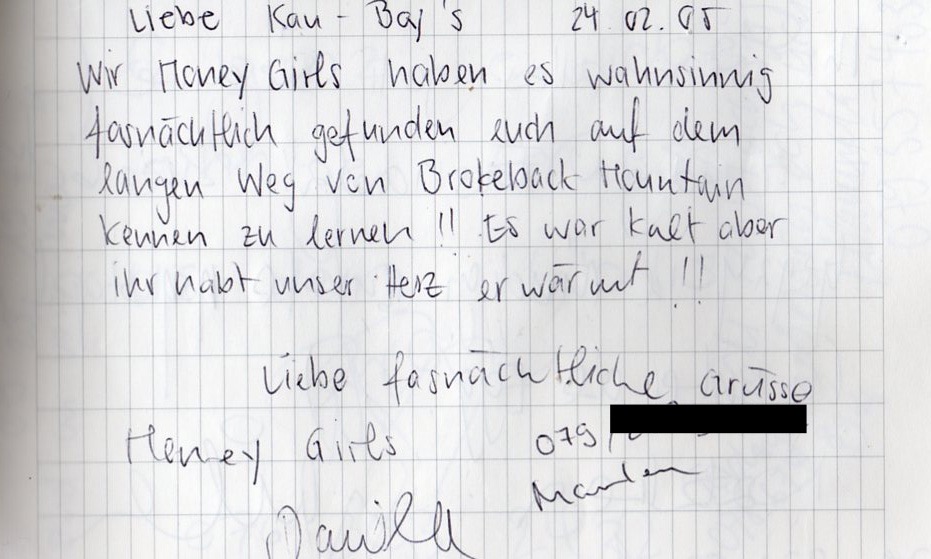 Liebe Kau-Boj's 24.02.05
Wir Honey Girls haben es wahnsinnig
fasnächtlich gefunden euch auf dem
langen Weg von Brokeback Mountain
kennen zu lernen !! Es war kalt aber
ihr habt unser Herz erwärmt !!
Liebe fasnächtliche Grüsse
Honey Girls 079/